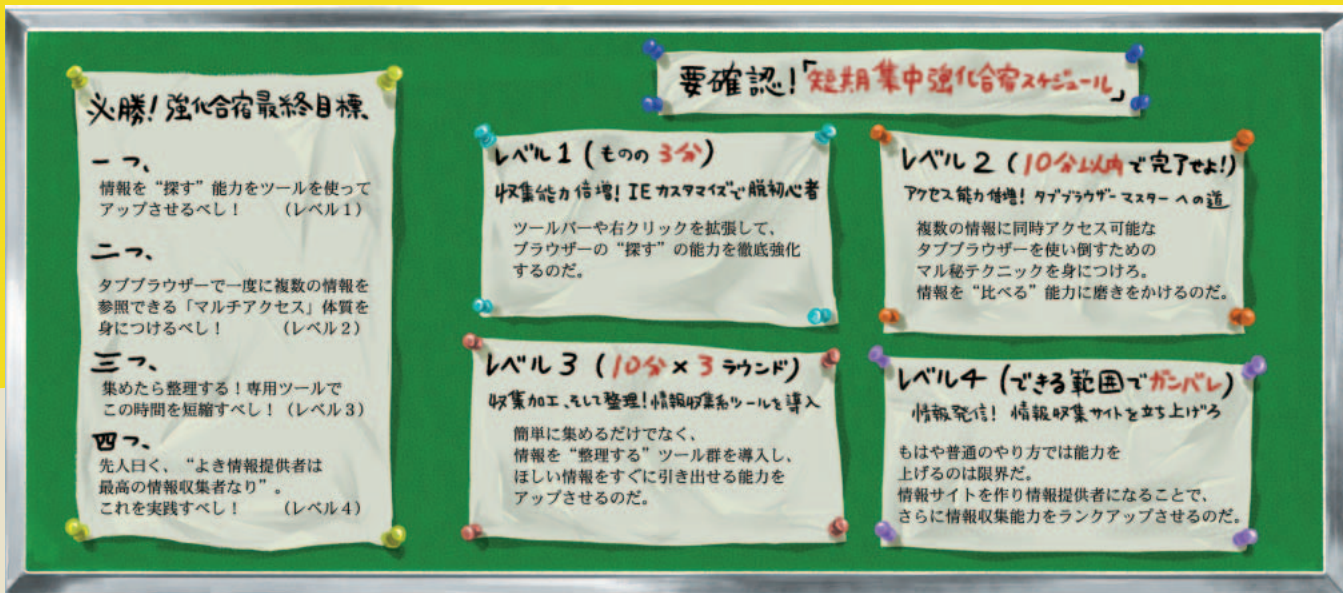 必勝！強化合宿最終目標、
一つ、
情報を“探す”能力をツールを使って
アップさせるべし！　（レベル１）
二つ、
タブブラウザーで一度に複数の情報を
参照できる「マルチアクセス」体質を
身につけるべし！　（レベル２）
三つ、
集めたら整理する！専用ツールで
この時間を短縮すべし！（レベル３）
四つ、
先人曰く、“よき情報提供者は
最高の情報収集者なり”。
これを実践すべし！　（レベル４）
要確認！「短期集中強化合宿スケジュール」
レベル1（ものの3分）
収集能力倍増！IEカスタマイズで脱初心者
ツールバーや右クリックを拡張して、
ブラウザーの“探す”の能力を徹底強化
するのだ。
レベル2（10分以内で完了せよ！）
アクセス能力倍増！タブブラウザーマスターへの道
複数の情報に同時アクセス可能な
タブブラウザーを使い倒すための
マル秘テクニックを身につけろ。
情報を“比べる”能力に磨きをかけるのだ。
レベル3（10分×3ラウンド）
収集加工、そして整理！情報収集系ツールを導入
簡単に集めるだけでなく、
情報を“整理する”ツール群を導入し、
ほしい情報をすぐに引き出せる能力を
アップさせるのだ。
レベル4（できる範囲でガンバレ）
情報発信！情報収集サイトを立ち上げろ
もはや普通のやり方では能力を
上げるのは限界だ。
情報サイトを作り情報提供者になることで、
さらに情報収集能力をランクアップさせるのだ。